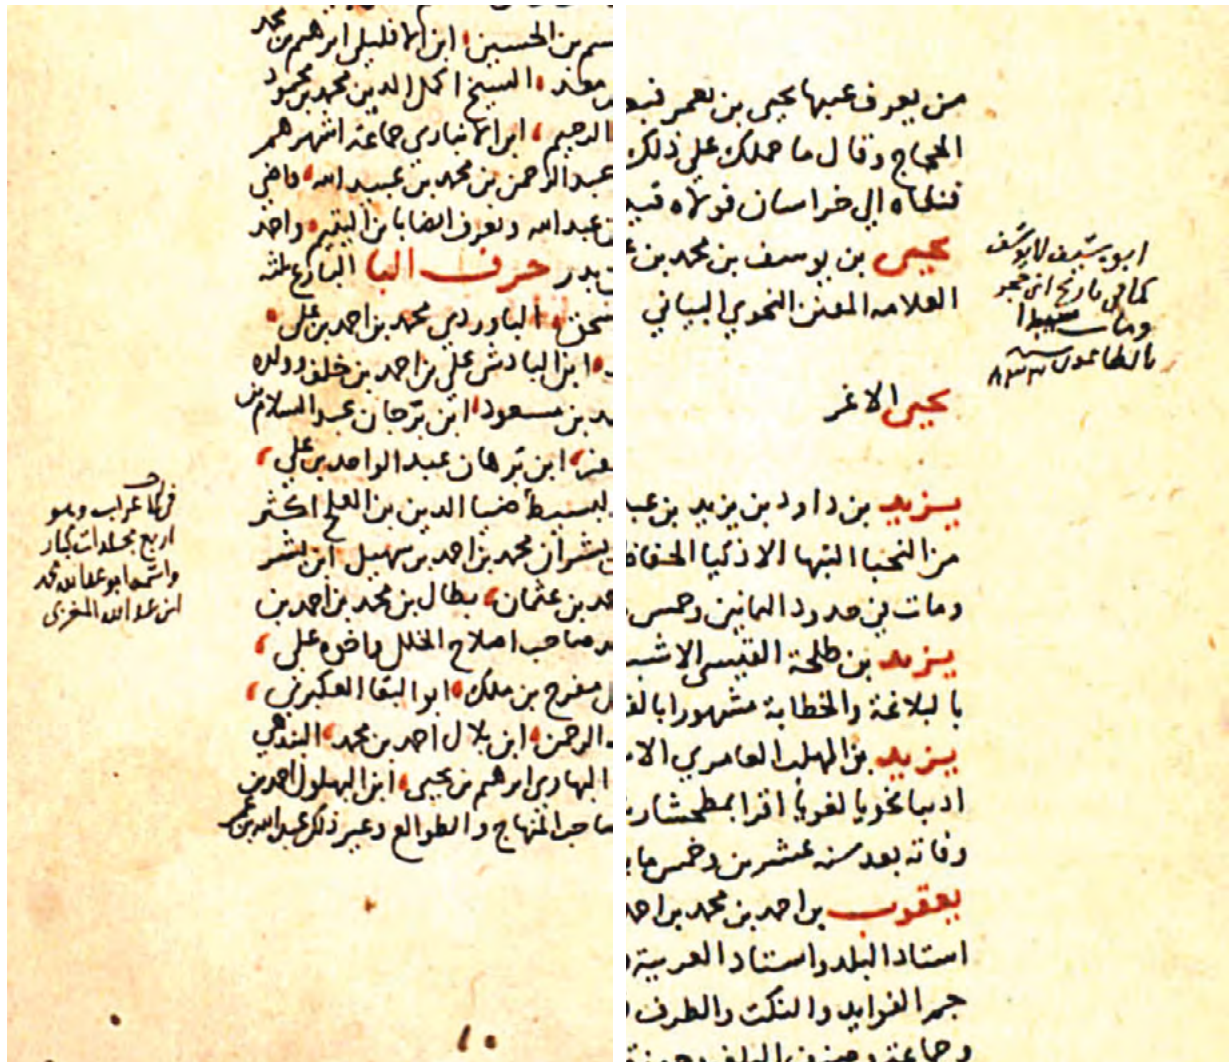 من يعرف عيبها يحيى بن يعمر فبعث
الحجاج وقال ما حملك علي ذلك
فنفاه الي خراسان فولاه قتيبة
يحيى بن يوسف بن محمد بن
العلامه المفنن النحوي البياني
يحيى الاغر
يزيد بن داود بن يزيد بن عبد
من النحبا النبها الاذكيا الحفاظ
ومات في حدود الثمانين وخمس
يزيد بن طلحة القيسي الاشبيلي
بالبلاغة والخطابة مشهورا بالف
يزيد بن المهلب العامري الا
اديبا نحويا لغويا اقرا
وفاته بعد سنه عشرين وخمس ما
يعقوب بن احمد بن محمد بن احمد
استاد البلد واستاد العربية و
جم الفوايد والنكت والطرف
ابو
كما في تاريخ ابن حجر
ومات شهيدا
بالطاعون سنه
٨٣٣
سم بن الحسين ابن الافليلي ابرهيم بن محمد
معد الشيخ اكمل الدين محمد بن محمود
الرحيم ابن الانباري جماعة اشهرهم
عبد الرحمن بن محمد بن عبيد الله قاضي
بن عبد الله ويعرف ايضا بابن اليتيم واحد
بدر حرف البا البارع ثلثه
الباوردي محمد بن احمد بن علي
ابن الباذش علي بن احمد بن خلف وولده
بن مسعود ابن برجان عبد السلام بن
ابن برهان عبد الواحد بن علي
البسيط ضيا الدين بن العلج اكثر
بشران محمد بن احمد بن سهيل ابن بشر
حمد بن عثمان بطال بن محمد بن احمد بن
صاحب اصلاح الخلل واخوه علي
مفرج بن ملك ابو البقا العكبري
الرحمن ابن بلال احمد بن محمد البندهي
البهاري ابرهيم بن يحيى ابن البهلول احمد بن
صاحب المنهاج والطوالع وغير ذلك عبد الله بن عمر
غراب وهو
اربع مجلدات كبار
واسمه ابو عبد الله محمد
ابن عبد الله المغربي
١٥